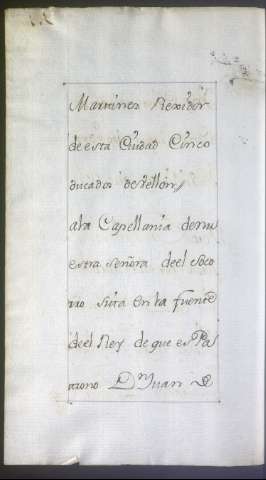 Martinez Rexidor
de esta Ciudad Cinco
ducados de Vellon,
a la Capellania de nu
estra señora de el Soco
rro sita en la fuente
de el Rey de que es Pa
trono Dn Juan de